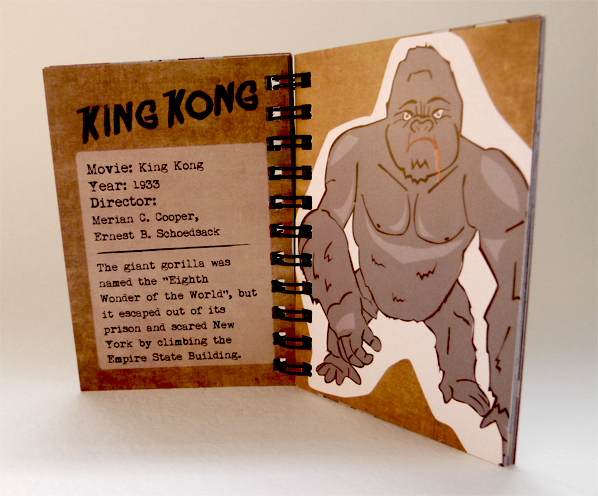 KING KONG
Movie: King Kong
Year: 1933
Director:
Merian C. Cooper,
Ernest B. Schoedsack
The giant gorilla was
named the "Eighth
Wonder of the World", but
it escaped out of its
prison and scared New
York by climbing the
Empire State Building.